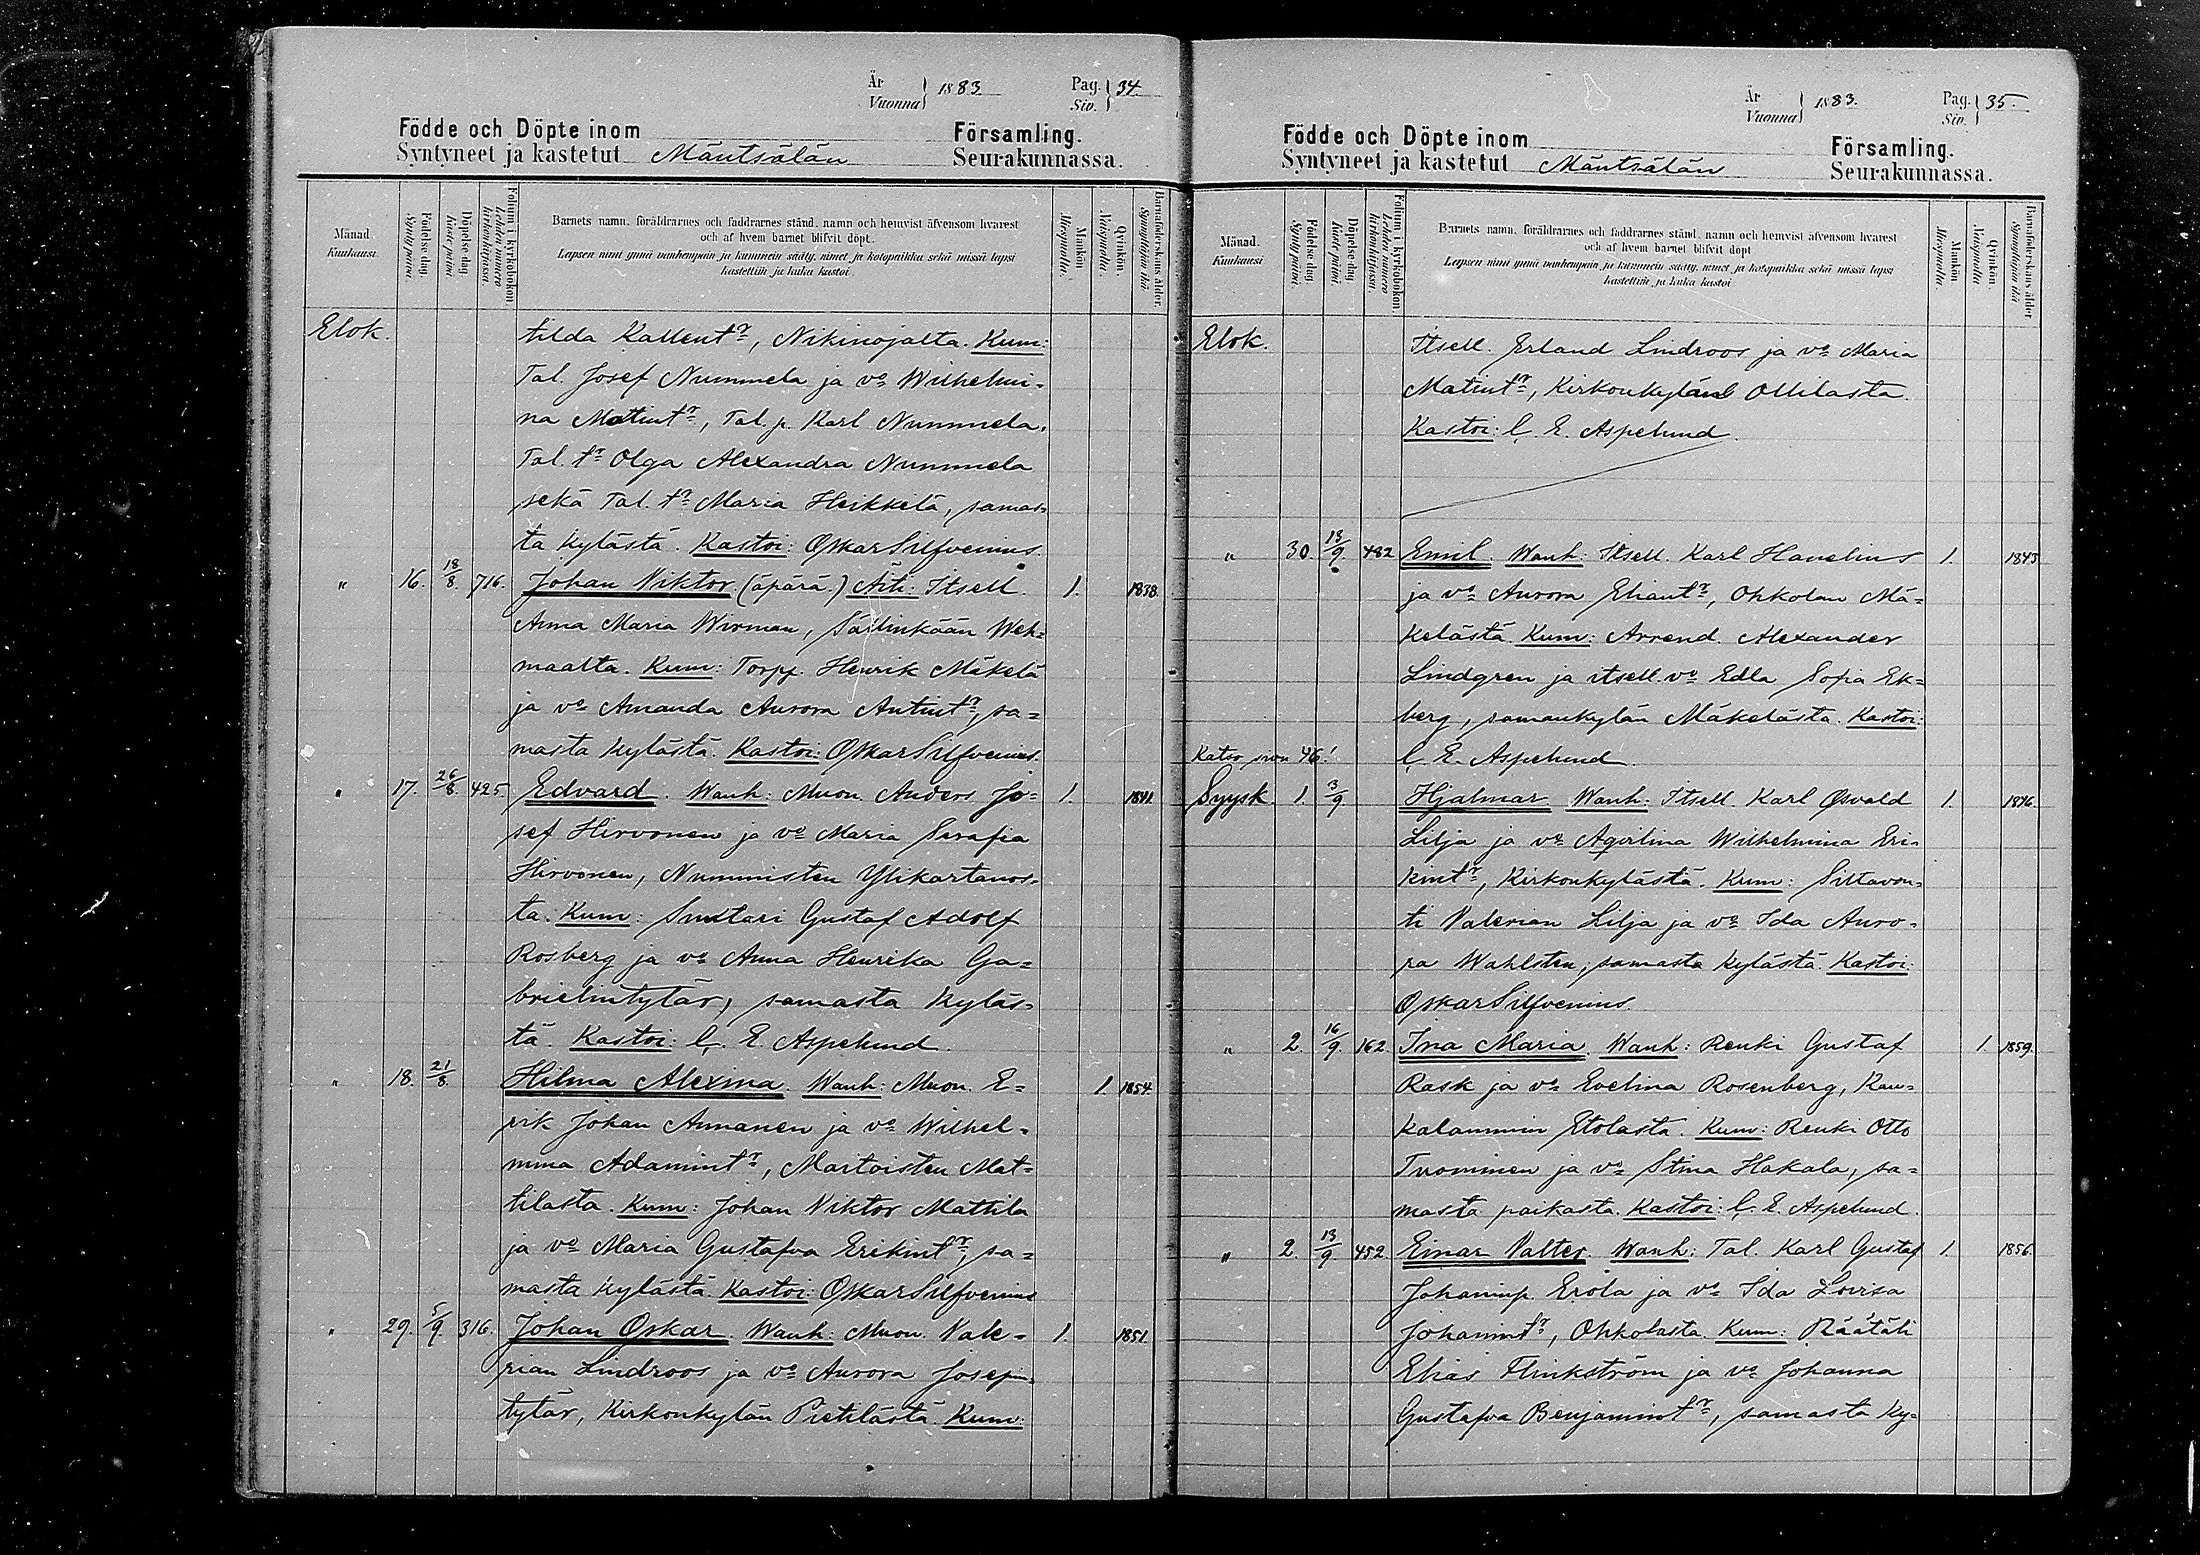 År
Vuonna } 1883.
Pag.
Siv. } 34.
Födde och Döpte inom Församling.
Syntyneet ja kastetut Mäntsälän Seurakunnassa.
Månad.
Kuukausi.
Födelse dag.
Syntypäivä.
Döpelse dag.
Kaste päivä.
Folium i kyrkobokon.
Lehden numero
kirkonkirjassa.
Barnets namn, föräldrarnes och faddrarnes stånd, namn och hemvist äfvensom hvarest
och af hvem barnet blifvit döpt.
Lapsen nimi ynnä vanhempain ja kummein sääty, nimet ja kotopaikka sekä missä lapsi
kastettiin ja kuka kastoi.
Mankön.
Miespuolta.
Qvinkön.
Naispuolta.
Barnaföderskans ålder.
Synnyttäjän ikä.
Elok. tilda Kallent:r, Nikinojalta. Kum:
Tal. Josef Nummela ja v:o Wilhelmi-
na Matint:r, Tal. p. Karl Nummela,
Tal. t:r Olga Alexandra Nummela
sekä Tal. t:r Maria Heikkelä, samas-
ta kylästä. Kastoi: Oskar Silfvenius.
" 16. 18/8. 716. Johan Viktor (äpärä.) Äiti: Itsell. 1. 1838.
Anna Maria Wirman, Sälinkään Weh-
maalta. Kum: Torpp. Henrik Mäkelä
ja v:o Amanda Aurora Antint:r, sa-
masta kylästä. Kastoi: Oskar Silfvenius.
" 17. 26/8. 425. Edvard. Wanh: Muon. Anders Jo- 1. 1841.
sef Hirvonen ja v:o Maria Serafia
Hirvonen, Nummisten Ylikartanos-
ta. Kum: Suutari Gustaf Adolf
Rosberg ja v:o Anna Henrika Ga-
brielintytär, samasta kyläs-
tä. Kastoi: C. E. Aspelund.
" 18. 21/8. Hilma Alexina. Wanh: Muon. E- 1. 1854.
rik Johan Annanen ja v:o Wilhel-
mina Adamint:r, Martoisten Mat-
tilasta. Kum: Johan Viktor Mattila
ja v:o Maria Gustafva Erikint:r, sa-
masta kylästä. Kastoi: Oskar Silfvenius
" 29. 5/9. 316. Johan Oskar. Wanh: Muon. Vale- 1. 1851.
rian Lindroos ja v:o Aurora Josefin-
tytär, Kirkonkylän Pietilästä. Kum:
År
Vuonna } 1883.
Pag.
Siv. } 35.
Födde och Döpte inom Församling.
Syntyneet ja kastetut Mäntsälän Seurakunnassa.
Månad.
Kuukausi.
Födelse dag.
Syntypäivä.
Döpelse dag.
Kaste päivä.
Folium i kyrkobokon.
Lehden numero
kirkonkirjassa.
Barnets namn, föräldrarnes och faddrarnes stånd, namn och hemvist äfvensom hvarest
och af hvem barnet blifvit döpt
Lapsen nimi ynnä vanhempain ja kummein sääty, nimet ja kotopaikka sekä missä lapsi
kastettiin ja kuka kastoi
Mankön
Miespuolta.
Qvinkön.
Naispuolta.
Barnaföderskans ålder
Synnyttäjän ikä
Elok. Itsell. Erland Lindroos ja v:o Maria
Matint:r, Kirkonkylän Ollilasta.
Kastoi: C. E. Aspelund.
" 30. 13/9. 482 Emil. Wanh: Itsell. Karl Havelius 1. 1843
ja v:o Aurora Eliant:r, Ohkolan Mä-
kelästä. Kum: Arrend. Alexander
Lindgren ja itsell. v:o Edla Sofia Ek-
berg, samankylän Mäkelästä. Kastoi:
Katso sivu 46! C. E. Aspelund.
Syysk. 1. 3/9. Hjalmar. Wanh: Itsell. Karl Osvald 1. 1846.
Lilja ja v:o Aqvilina Wilhelmina Eri-
kint:r, Kirkonkylästä. Kum: Siltavou-
ti Valerian Lilja ja v:o Ida Auro-
ra Wahlsten, samasta kylästä. Kastoi:
Oskar Silfvenius.
" 2. 16/9. 162. Ina Maria. Wanh: Renki Gustaf 1. 1859.
Rask ja v:o Evelina Rosenberg, Kau-
kalammin Etolasta. Kum: Renki Otto
Tuominen ja v:o Stina Hakala, sa-
masta paikasta. Kastoi: C. E. Aspelund.
" 2. 13/9. 452. Einar Valter. Wanh: Tal. Karl Gustaf 1. 1856.
Johaninp. Erola ja v:o Ida Lovisa
Johanint:r, Ohkolasta. Kum: Räätäli
Elias Flinkström ja v:o Johanna
Gustafva Benjamint:r, samasta ky-